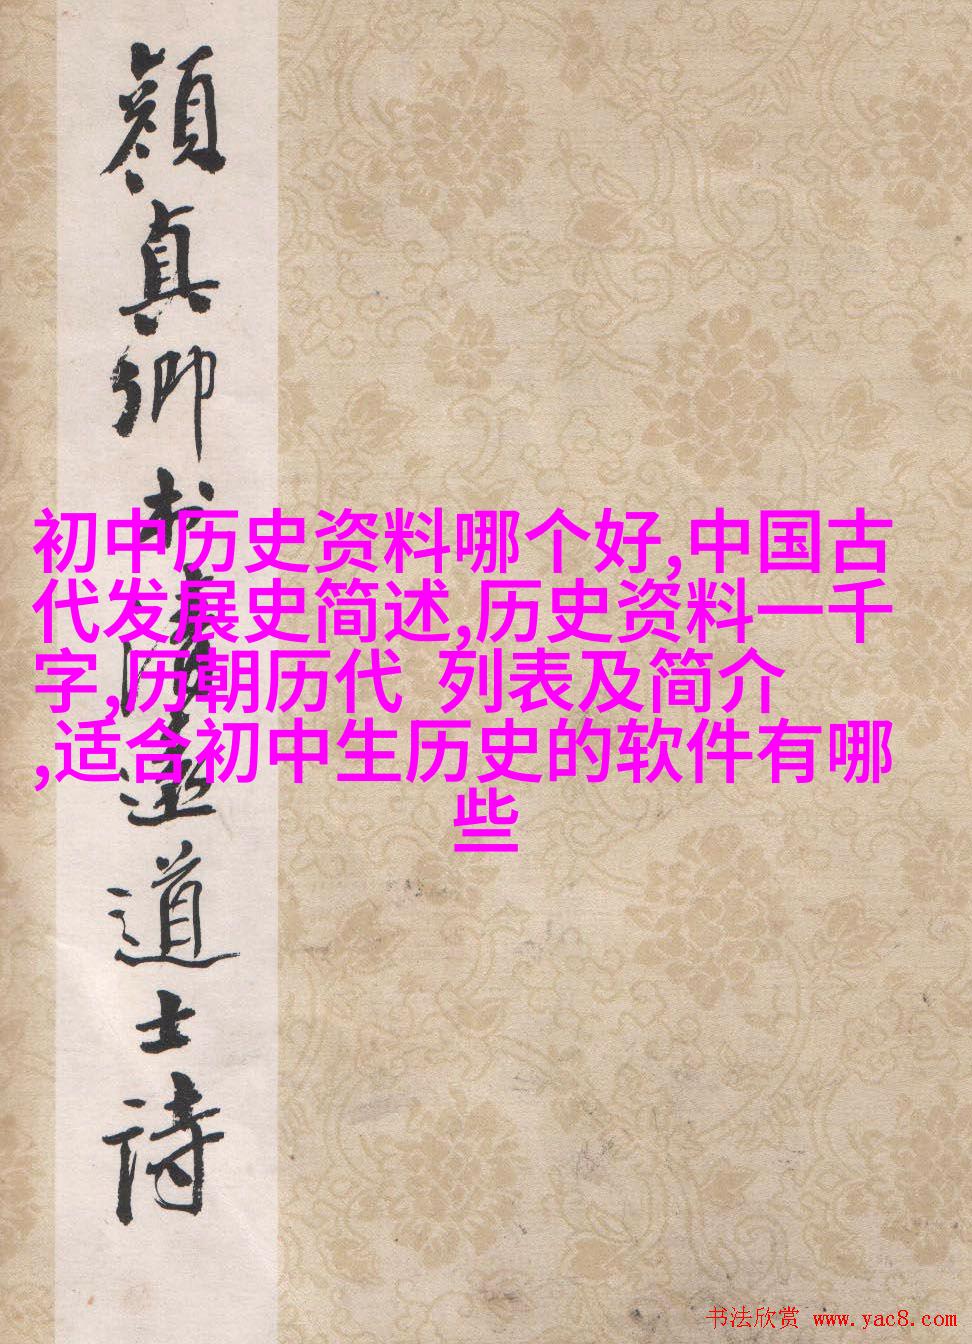 顔真卿书
道士诗
初中历史资料哪个好,中国古
代发展史简述,历史资料一千
字,历朝历代 列表及简介
,适合初中生历史的软件有哪
些
书法欣赏 www.yac8.com